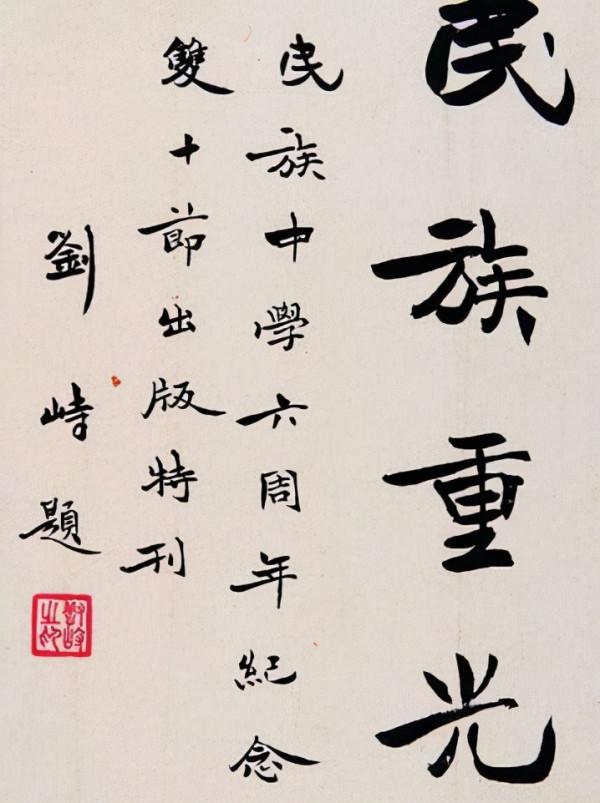 民族重光
民族中學六周年紀念
雙十節出版特刊
劉峙題
劉峙之印